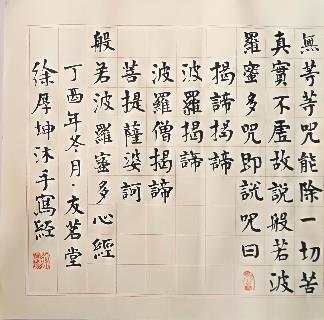 無等等咒能除一切苦
真實不虛故說般若波
羅蜜多咒即說咒曰
揭諦揭諦
波羅揭諦
波羅僧揭諦
菩提薩婆訶
般若波羅蜜多心經
丁酉年冬月·友茗堂
徐厚坤沐手寫經